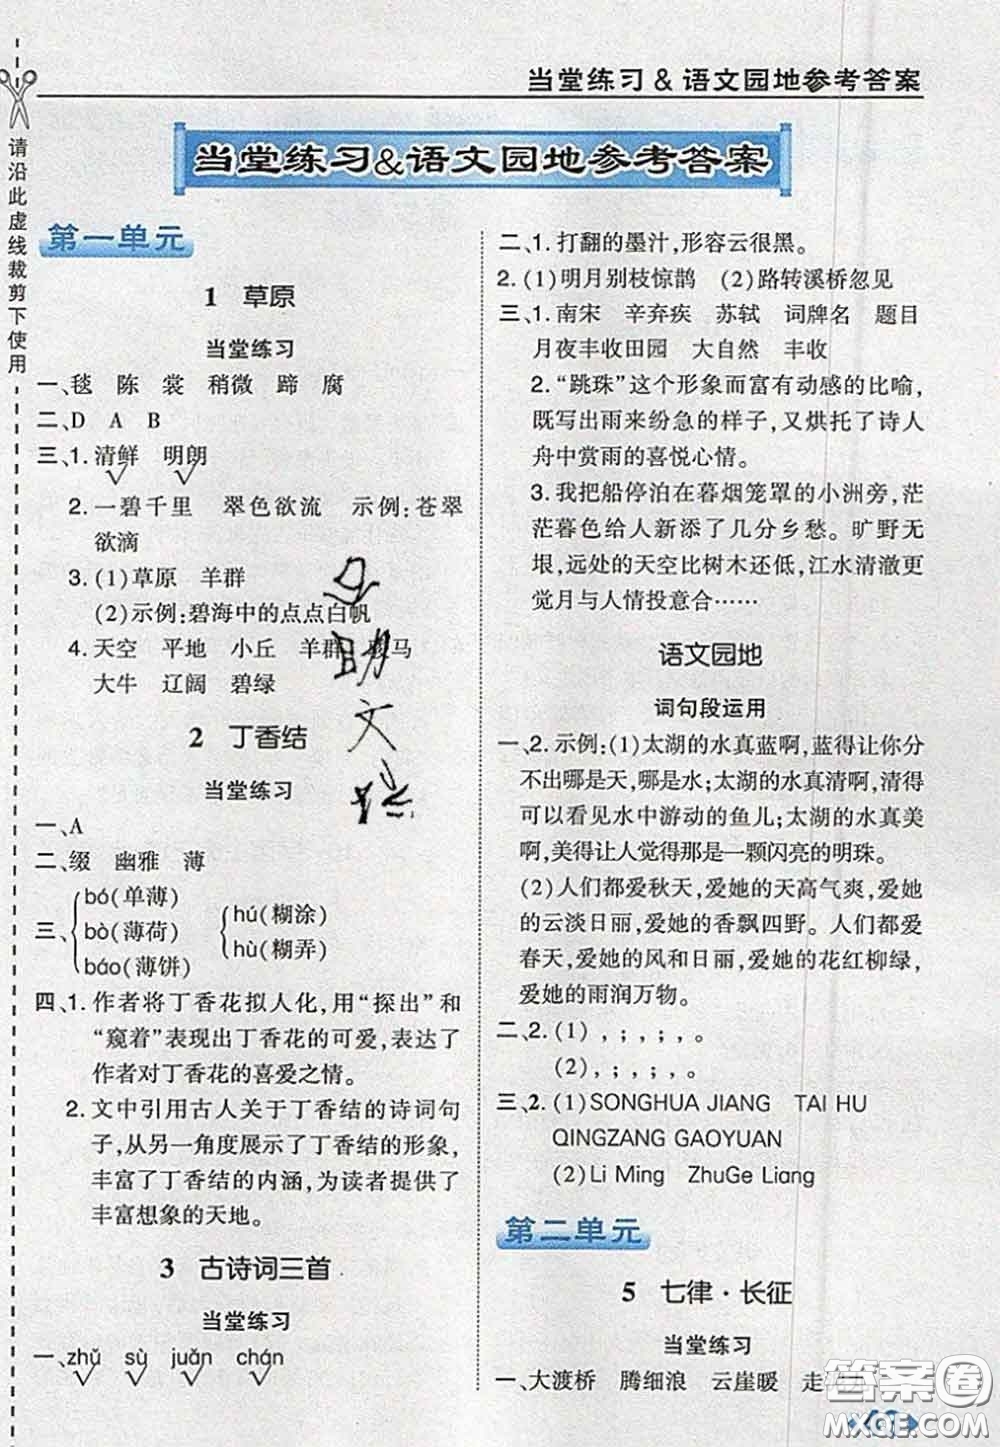 当堂练习&语文园地参考答案
请沿此虚线裁剪下使用
当堂练习&语文园地参考答案
第一单元
1 草原
当堂练习
一、毯 陈 裳 稍微 蹄 腐
二、D A B
三、1.清鲜 明朗
2.一碧千里 翠色欲流 示例:苍翠
欲滴
3.(1)草原 羊群
(2)示例:碧海中的点点白帆
4.天空 平地 小丘 羊群 骏马
大牛 辽阔 碧绿
2 丁香结
当堂练习
一、A
二、缀 幽雅 薄
bó(单薄)
三、bò(薄荷)
báo(薄饼)
hú(糊涂)
hù(糊弄)
四、1.作者将丁香花拟人化,用“探出”和
“窥着”表现出丁香花的可爱,表达了
作者对丁香花的喜爱之情。
2.文中引用古人关于丁香结的诗词句
子,从另一角度展示了丁香结的形象,
丰富了丁香结的内涵,为读者提供了
丰富想象的天地。
3 古诗词三首
当堂练习
一、zhǔ sù juǎn chán
二、1.打翻的墨汁,形容云很黑。
2.(1)明月别枝惊鹊 (2)路转溪桥忽见
三、1.南宋 辛弃疾 苏轼 词牌名 题目
月夜丰收田园 大自然 丰收
2.“跳珠”这个形象而富有动感的比喻,
既写出雨来纷急的样子,又烘托了诗人
舟中赏雨的喜悦心情。
3.我把船停泊在暮烟笼罩的小洲旁,茫
茫暮色给人新添了几分乡愁。旷野无
垠,远处的天空比树木还低,江水清澈更
觉月与人情投意合……
语文园地
词句段运用
一、2.示例:(1)太湖的水真蓝啊,蓝得让你分
不出哪是天,哪是水;太湖的水真清啊,清得
可以看见水中游动的鱼儿;太湖的水真美
啊,美得让人觉得那是一颗闪亮的明珠。
(2)人们都爱秋天,爱她的天高气爽,爱她
的云淡日丽,爱她的香飘四野。人们都爱
春天,爱她的风和日丽,爱她的花红柳绿,
爱她的雨润万物。
二、2.(1),;,;,。
(2),;,;,。
三、2.(1)SONGHUA JIANG TAI HU
QINGZANG GAOYUAN
(2)Li Ming ZhuGe Liang
第二单元
5 七律·长征
当堂练习
一、大渡桥 腾细浪 云崖暖 走
答案圈
MXQE.COM